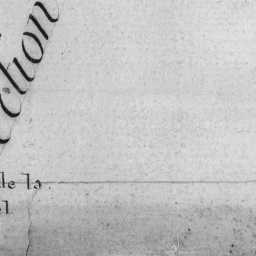 ction
de la
el